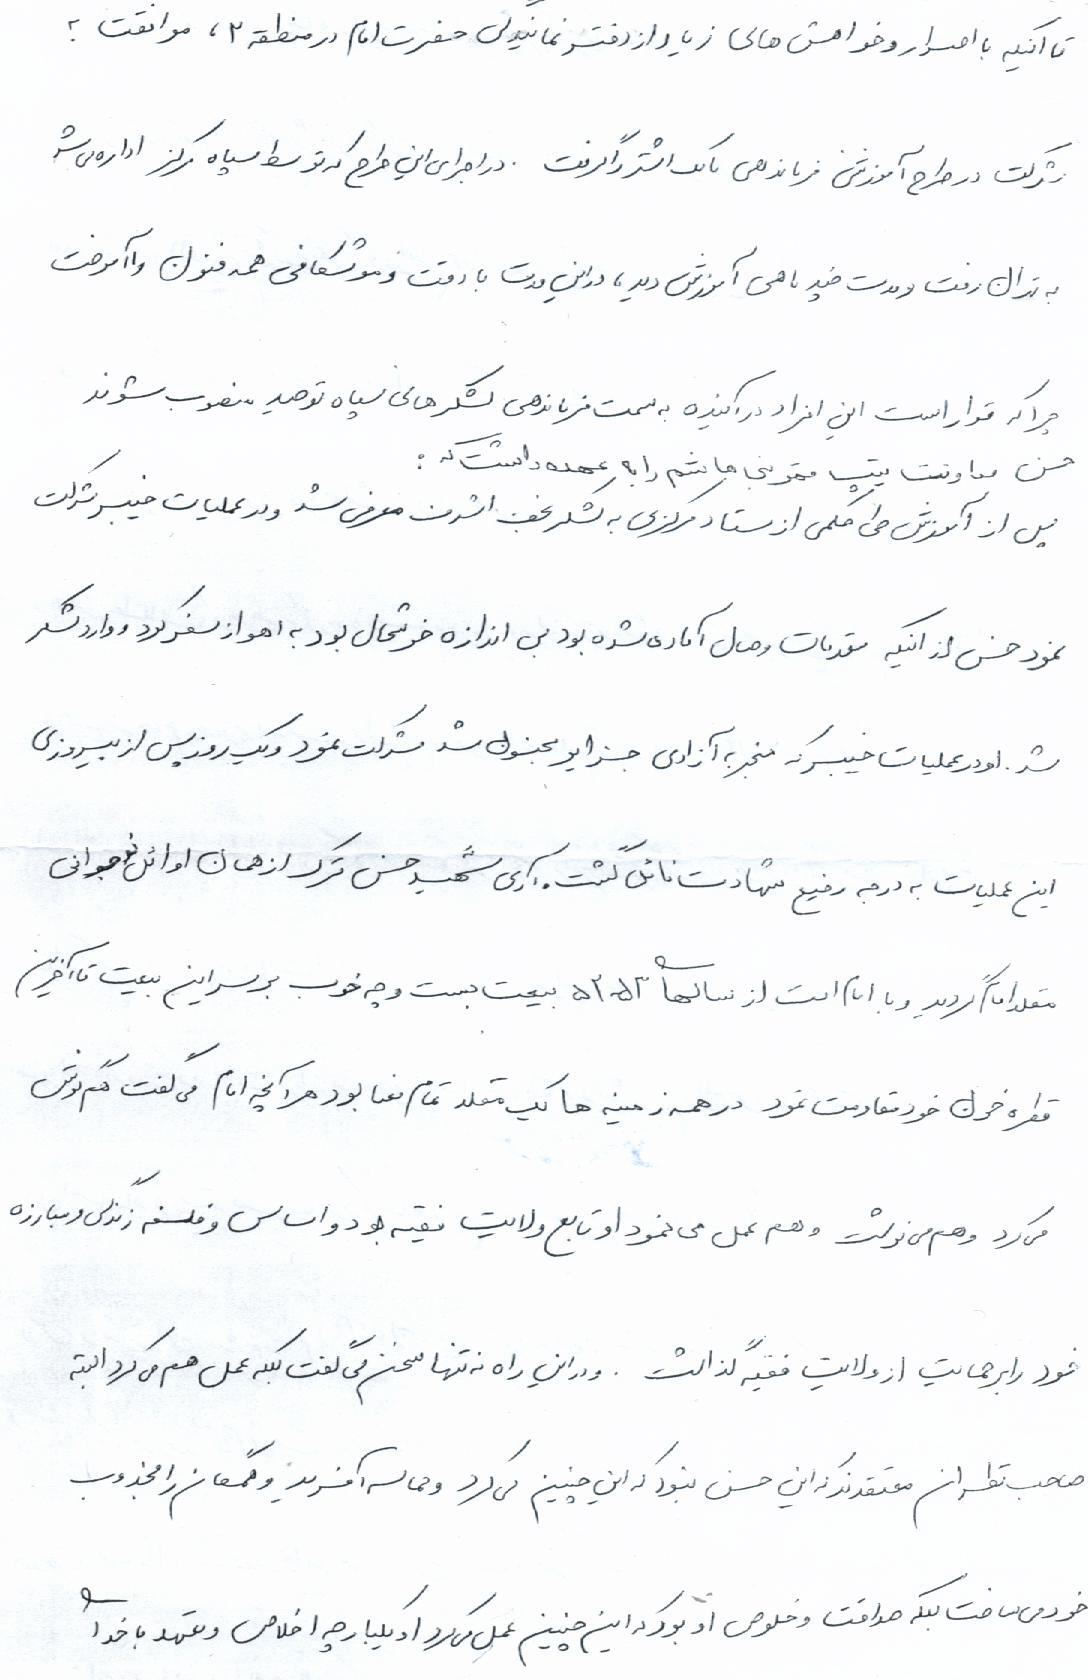 تا آنکه با اصرار و خواهش های زیاد از دفتر نمایندگی حضرت امام در منطقه ۲، موافقت به
شرکت در طرح آموزش فرماندهی مالک اشتر را گرفت. در اجرای این طرح که توسط سپاه مرکز اداره می شد
به تهران رفت و مدت چند ماهی آموزش دید، در این مدت با دقت و موشکافی همه فنون را آموخت
چرا که قرار است این افراد در آینده به سمت فرماندهی لشکرهای سپاه توحید منصوب شوند
حسن معاونت تیپ قمر بنی هاشم را به عهده داشت که:
پس از آموزش طی حکمی از ستاد مرکزی به لشکر نجف اشرف معرفی شد و در عملیات خیبر شرکت
نمود حسن از اینکه مقدمات وصال آماده شده بود بی اندازه خوشحال بود به اهواز سفر کرد و وارد لشکر
شد. او در عملیات خیبر که منجر به آزادی جزایر مجنون شد شرکت نمود و یک روز پس از پیروزی
این عملیات به درجه رفیع شهادت نائل گشت. آری شهید حسن ترک از همان اوائل نوجوانی
مقلد امام گردید و با امام امت از سالهای ۵۳-۵۲ بیعت بست و چه خوب بر سر این بیعت تا آخرین
قطره خون خود مقاومت نمود در همه زمینه ها یک مقلد تمام معنا بود هر آنچه امام می گفت هم گوش
می کرد و هم می نوشت و هم عمل می نمود او تابع ولایت فقیه بود و اساس و فلسفه زندگی و مبارزه
خود را بر حمایت از ولایت فقیه گذاشت. و در این راه نه تنها سخن می گفت بلکه عمل هم می کرد البته
صاحب نظران معتقدند که این حسن نبود که این چنین می کرد و حماسه آفرید و همگان را مجذوب
خود می ساخت بلکه صداقت و خلوص او بود که این چنین عمل می کرد او یکپارچه اخلاص و تعهد با خدا